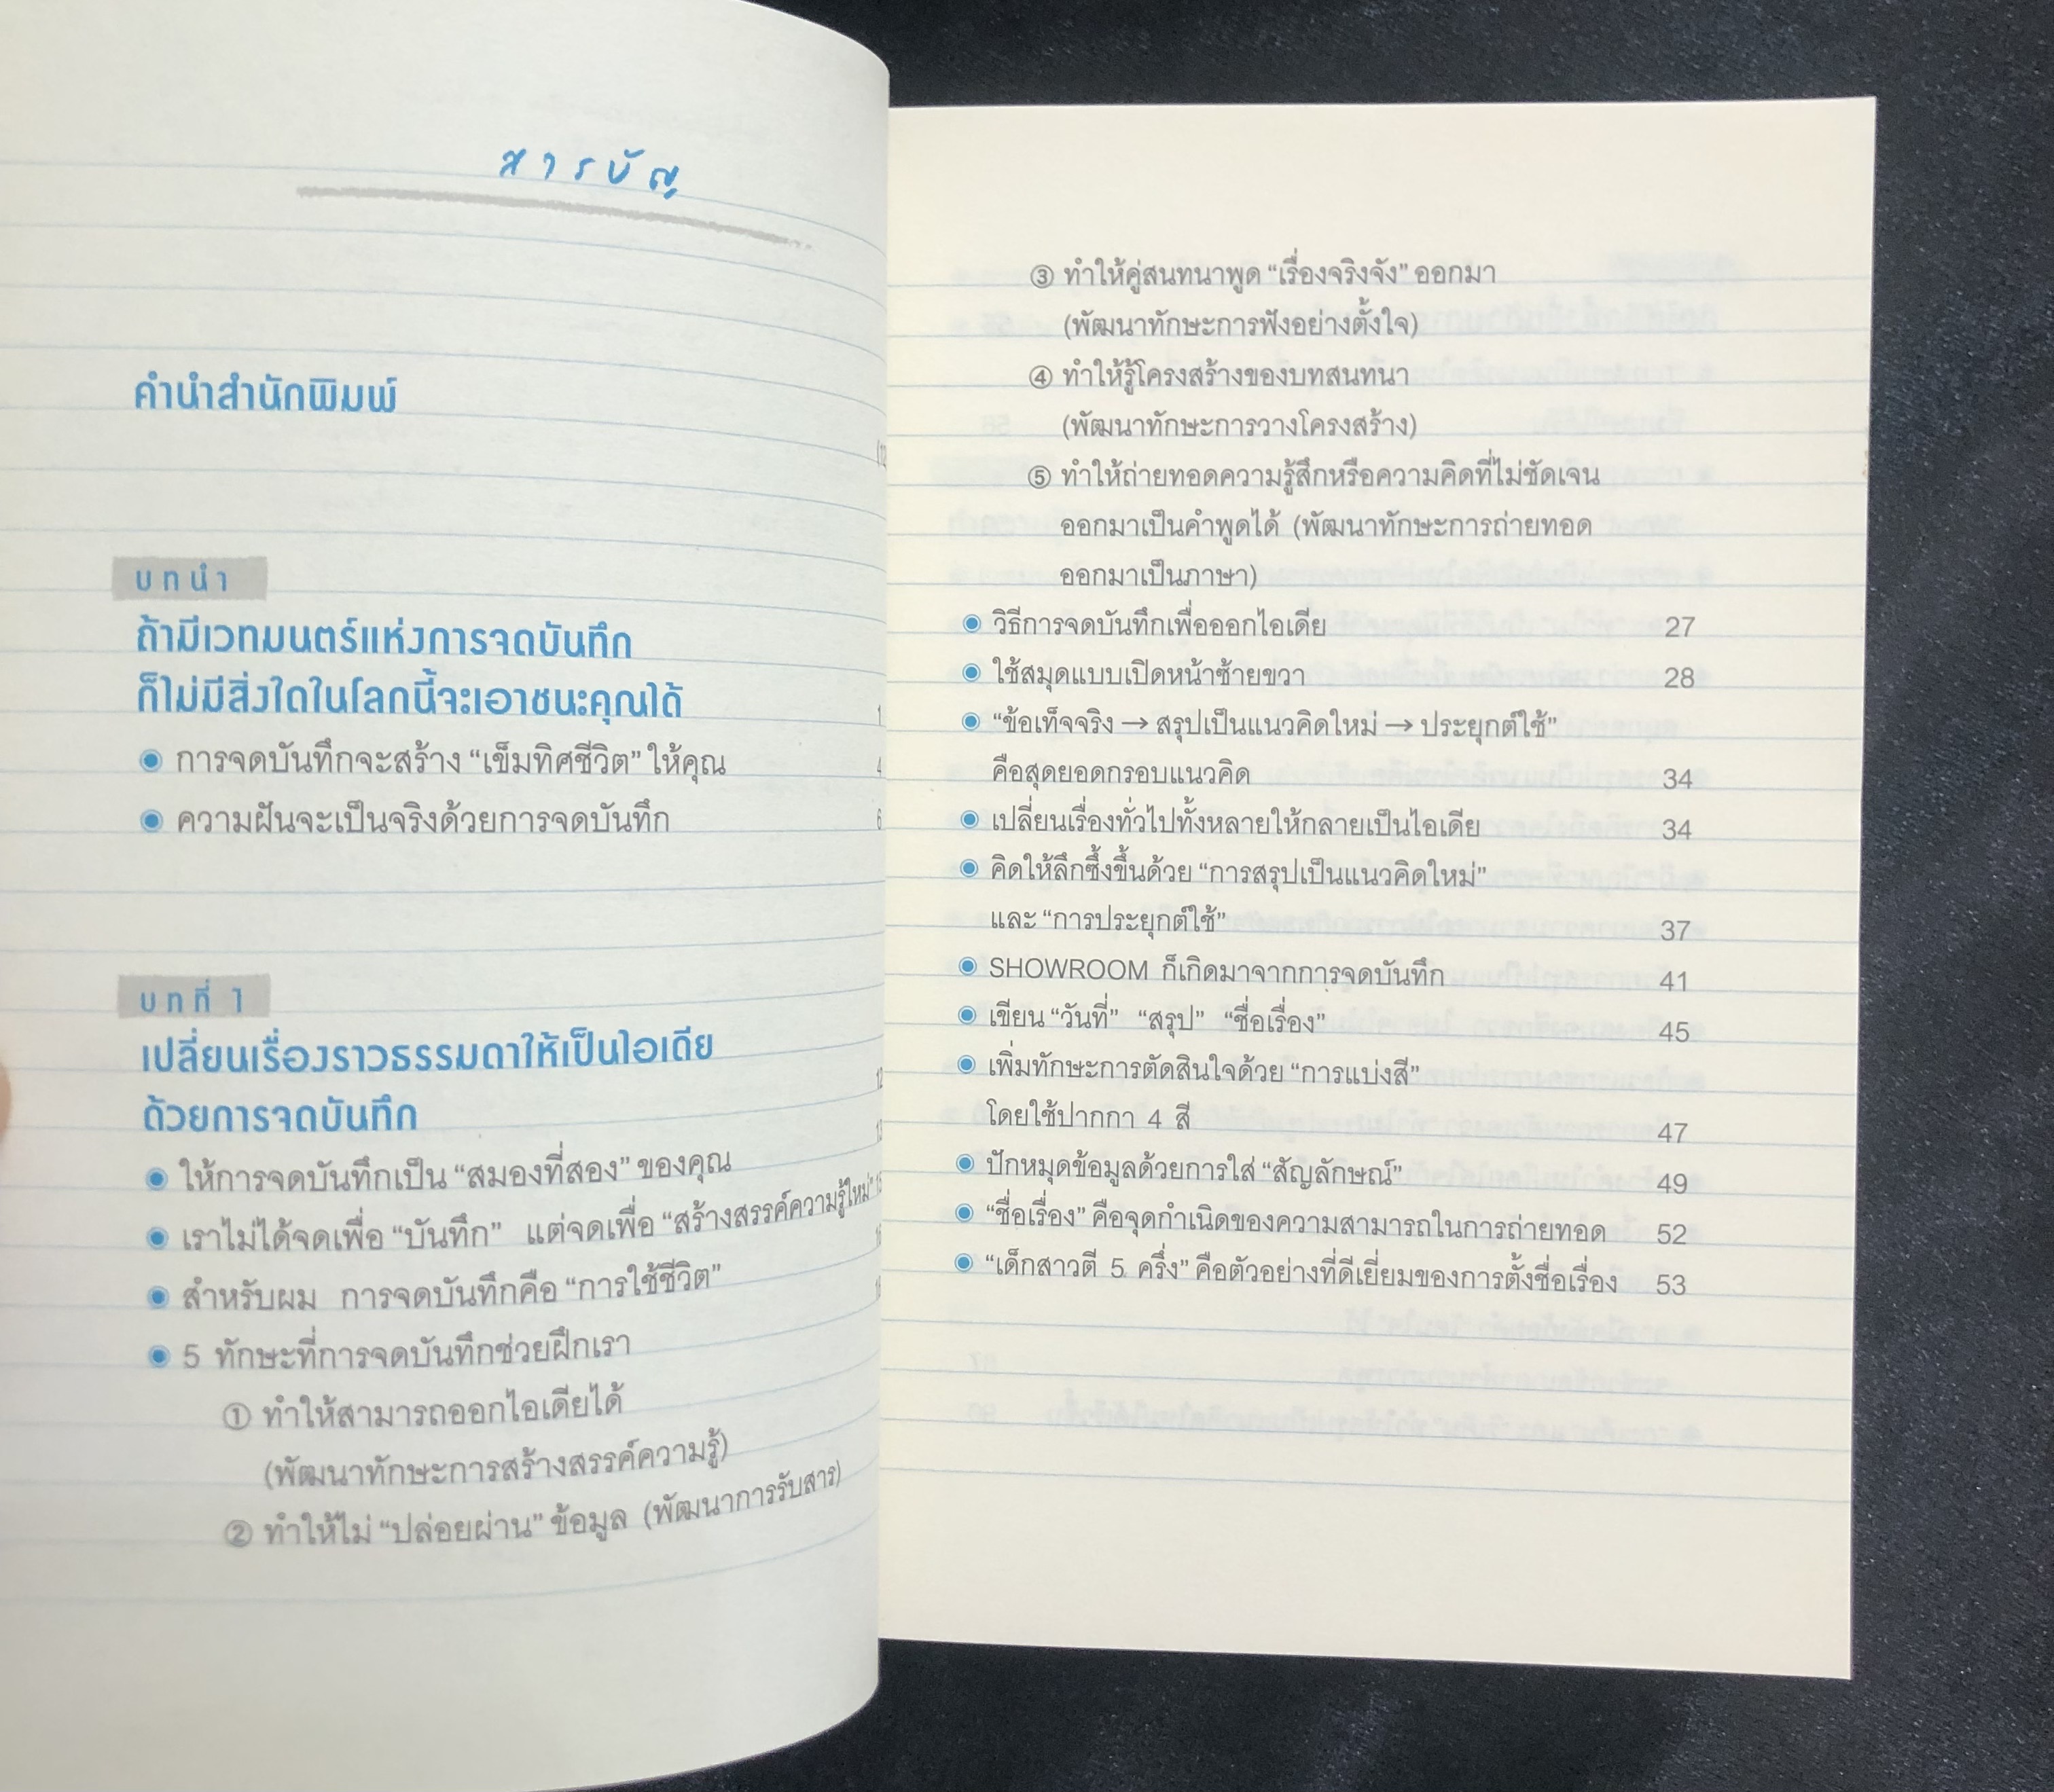 สารบัญ
คำนำสำนักพิมพ์
บทนำ
ถ้ามีเวทมนตร์แห่งการจดบันทึก
ก็ไม่มีสิ่งใดในโลกนี้จะเอาชนะคุณได้ 1
การจดบันทึกจะสร้าง “เข็มทิศชีวิต” ให้คุณ 4
ความฝันจะเป็นจริงด้วยการจดบันทึก 6
บทที่ 1
เปลี่ยนเรื่องราวธรรมดาให้เป็นไอเดีย
ด้วยการจดบันทึก
ให้การจดบันทึกเป็น “สมองที่สอง” ของคุณ
เราไม่ได้จดเพื่อ “บันทึก” แต่จดเพื่อ “สร้างสรรค์ความรู้ใหม่”
สำหรับผม การจดบันทึกคือ “การใช้ชีวิต”
5 ทักษะที่การจดบันทึกช่วยฝึกเรา
① ทำให้สามารถออกไอเดียได้
(พัฒนาทักษะการสร้างสรรค์ความรู้)
② ทำให้ไม่ “ปล่อยผ่าน” ข้อมูล (พัฒนาการรับสาร)
③ ทำให้คู่สนทนาพูด “เรื่องจริงจัง” ออกมา
(พัฒนาทักษะการฟังอย่างตั้งใจ)
④ ทำให้รู้โครงสร้างของบทสนทนา
(พัฒนาทักษะการวางโครงสร้าง)
⑤ ทำให้ถ่ายทอดความรู้สึกหรือความคิดที่ไม่ชัดเจน
ออกมาเป็นคำพูดได้ (พัฒนาทักษะการถ่ายทอด
ออกมาเป็นภาษา)
วิธีการจดบันทึกเพื่อออกไอเดีย 27
ใช้สมุดแบบเปิดหน้าซ้ายขวา 28
“ข้อเท็จจริง → สรุปเป็นแนวคิดใหม่ → ประยุกต์ใช้”
คือสุดยอดกรอบแนวคิด 34
เปลี่ยนเรื่องทั่วไปทั้งหลายให้กลายเป็นไอเดีย 34
คิดให้ลึกซึ้งขึ้นด้วย “การสรุปเป็นแนวคิดใหม่”
และ “การประยุกต์ใช้” 37
SHOWROOM ก็เกิดมาจากการจดบันทึก 41
เขียน “วันที่” “สรุป” “ชื่อเรื่อง” 45
เพิ่มทักษะการตัดสินใจด้วย “การแบ่งสี”
โดยใช้ปากกา 4 สี 47
ปักหมุดข้อมูลด้วยการใส่ “สัญลักษณ์” 49
“ชื่อเรื่อง” คือจุดกำเนิดของความสามารถในการถ่ายทอด 52
“เด็กสาวตี 5 ครึ่ง” คือตัวอย่างที่ดีเยี่ยมของการตั้งชื่อเรื่อง 53